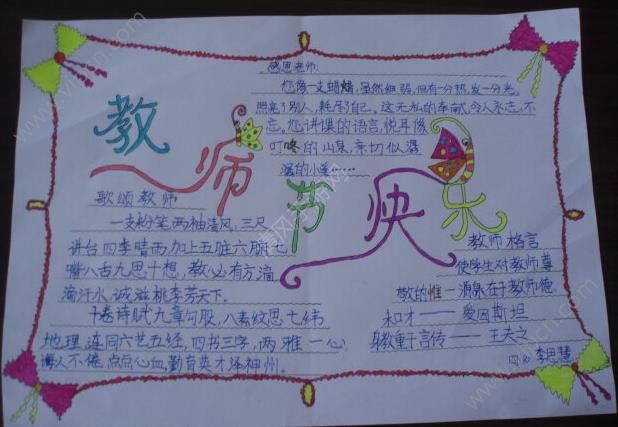 感恩老师:
您像一支蜡烛,虽然细弱,但有一分热,发一分光,
照亮了别人,耗尽了自己。这无私的奉献,令人永志不
忘。您讲课的语言,悦耳像
叮咚的山泉,亲切似潺
潺的小溪……
教师节快乐
歌颂教师
一支粉笔两袖清风,三尺
讲台四季晴雨,加上五脏六腑七
嘴八舌九思十想,教必有方滴
滴汗水,诚滋桃李芳天下。
十卷诗赋九章勾股,八索文思七纬
地理,连同六艺五经,四书三字,两雅一心,
诲人不倦,点点心血,勤育英才泽神州。
教师格言
使学生对教师尊
敬的惟一源泉在于教师德
和才——爱因斯坦
身教重于言传——王夫之
李思慧